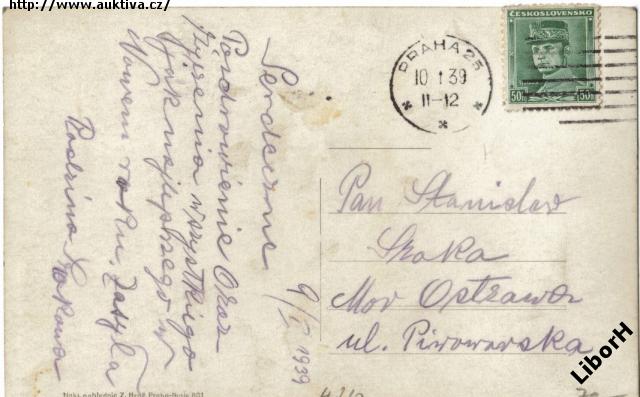 http://www.auktiva.cz/
ČESKOSLOVENSKO
50h 50h
PRAHA 25
10 I 39
11-12
Serdeczne
Pozdrowienie Oraz
Życzenia wszystkiego
jak najlepszego w
Nowem roku, Zasyła
Rodzina Sokowa
9/I 1939
Pan Stanislav
Soka
Mor Ostrawa
ul. Piwowarska
LiborH